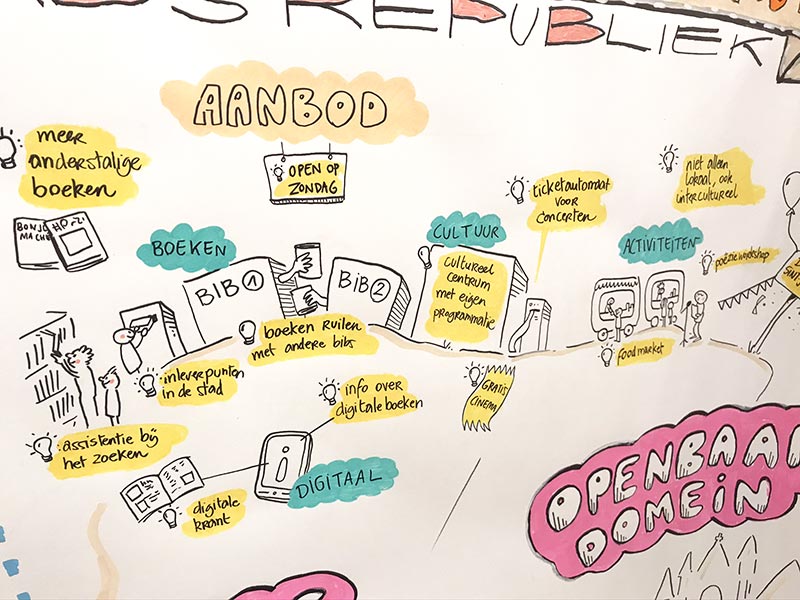 REPUBLIEK
AANBOD
OPEN OP
ZONDAG
meer
anderstalige
boeken
BONJO
MACHE
BOEKEN
BIB 1
BIB 2
boeken ruilen
met andere bibs
CULTUUR
cultureel
centrum
met eigen
programmatie
ticketautomaat
voor
concerten
niet alleen
lokaal, ook
intercultureel
ACTIVITEITEN
poëzieworkshop
foodmarket
inleverpunten
in de stad
assistentie bij
het zoeken
info over
digitale boeken
i
DIGITAAL
digitale
krant
GRATIS
CINEMA
OPENBAAR
DOMEIN